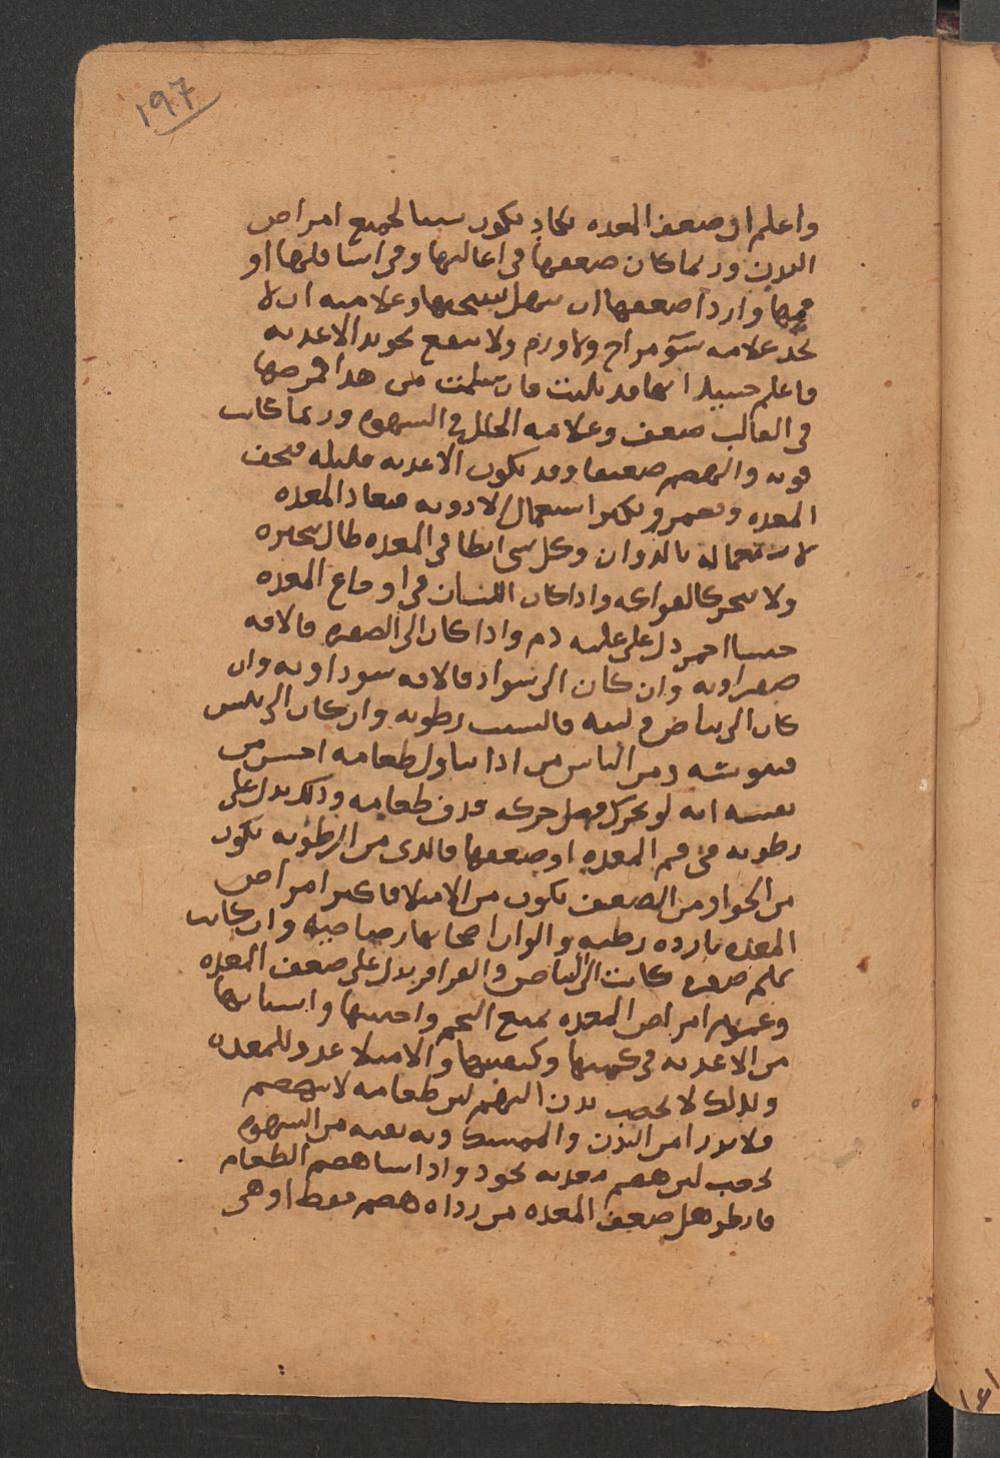 ١٩٧
واعلم ان ضعف المعده يكاد يكون سببا لجميع امراض
البدن وربما كان ضعفها في اعاليها وفي اسافلها او
فيها واردأ ضعفها ان وعلامته ان لا
تجد علامه سوء مزاج ولا ورم ولا ينفع تجويد الاغديه
فاعلم حينيذ انها قد بليت فان سلمت من هدا فمرضها
في الغالب ضعف وعلامه الخلل في الشهوه وربما كانت
قويه والهضم ضعيفا وقد تكون الاغديه قليله فتجف
المعده وتضمر ويكثر استعمال الادويه فتعتاد المعده
لاستعمالها وكل شي ابطا في المعده طال
ولا كالفواكه وادا كان اللسان في اوجاع المعده
خشنا احمر دل على غلبه دم وادا كان الى الصفره فالافه
صفراويه وان كان الى سواد فالافه سوداويه وان
كان الى بياض ولبنيه فالسبب رطوبه وان كان الى يبس
فيبوسته ومن الناس من ادا تناول طعامه احس من
نفسه انه لو تحرك فضل حركه قدف طعامه ودلك يدل على
رطوبه في فم المعده او ضعفها فالدى من الرطوبه يكون
من الخوا ومن الضعف يكون من الامتلا فاكثر امراض
المعده بارده رطبه والوان اصحابها رصاصيه وان كانت
صفره كانت الى البياض والقراقر يدل على ضعف المعده
امراض المعده تتبع التخم واجتنبها واسبابها
من الاغديه في كميتها وكيفيتها والامتلا عدو للمعده
ولدلك لا يخصب بدن النهم لان طعامه لا ينهضم
فلا يدرا من البدن والممسك وبه بقيه من الشهوه
يخصب لان هضم معدته يجود وادا ساهضم الطعام
فانظر هل ضعف المعده من رداه هضم فقط او هي